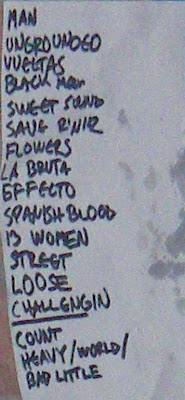 MAN
UNGROUNDED
VUELTAS
BLACK MOON
SWEET SOUND
SAVE R'N'R
FLOWERS
LA BRUTA
EFFECTO
SPANISH BLOOD
13 WOMEN
STREET
LOOSE
CHALLENGIN
COUNT
HEAVY/WORLD/
BAD LITTLE